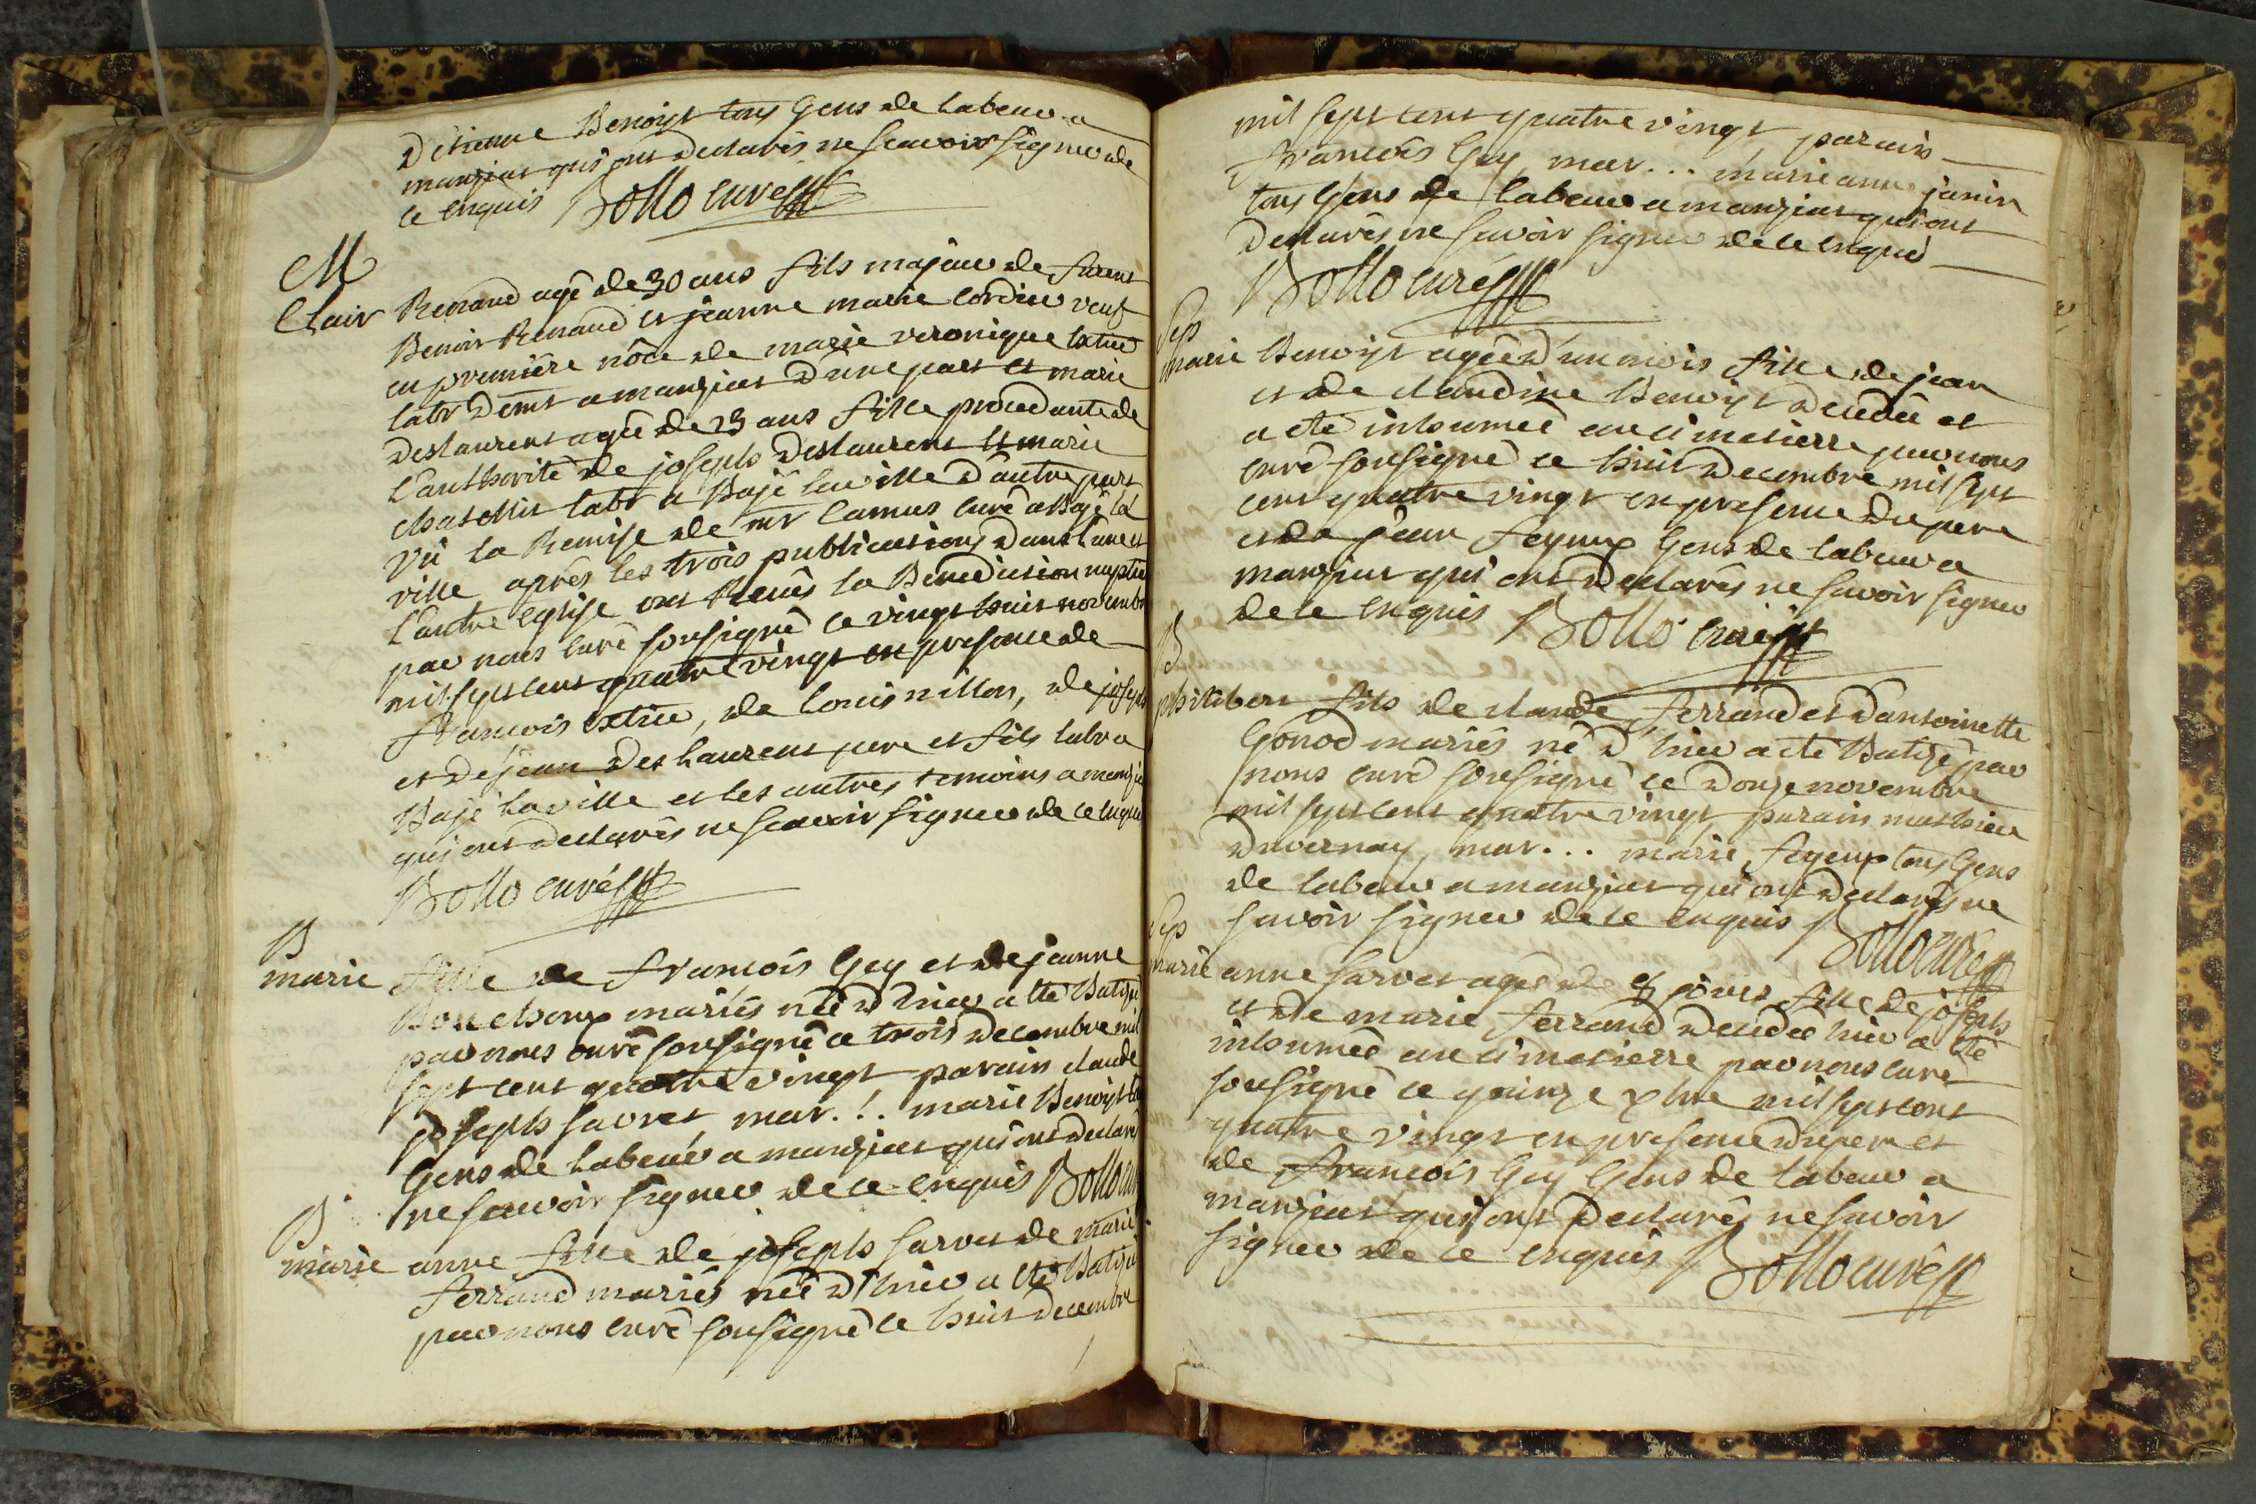 D'étienne Benoist tous Gens de labeur a
manziat qui ont declarés ne scavoir signer de
ce enquis Bollo curé
M
Clair Renaud agé de 30 ans fils majeur de furent
Benoit Renaud et jeanne marie Cordier veuf
en premiere nôce de marie veronique
labr demt a manziat d'une part et marie
deslaurent agée de 23 ans fille procedante de
l'authorité de joseph deslaurent et marie
chatellit labr a Bajé la ville d'autre part
Vü la Remise de mr Camus curé a Bajé la
ville après les trois publications dans l'une et
l'autre eglise ont Reçûs la Benediction nuptia
par nous curé sousigné ce vingt huit novembr
mil sept cent quatre vingt en presence de
francois, de louis nillon, de joseph
et de jean des laurent pere et fils labr a
Bajé la ville et les autres temoins a manzia
qui ont declarés ne scavoir signer de ce enqui
Bollo curé
B
marie fille de francois Gey et de jeanne
Bouchoux mariés née d'hier a été Batisé
par nous curé sousigné ce trois decembre mil
sept cent quatre vingt parain claude
joseph favret mar... marie Benoist
Gens de labeur a manziat qui ont declaré
ne scavoir signer de ce enquis Bollo cur
B
marie anne fille de joseph farvet de marie
ferrand mariés née d'hier a été Batisé
par nous curé sousigné ce huit decembre
mil sept cent quatre vingt parain
francois Gey mar... marie anne janin
tous Gens de labeur a manziat qui ont
declarés ne savoir signer de ce enquis
Bollo curé
Sep
marie Benoist agée d'un mois fille de jean
et de claudine Benoist decedée et
a été inhumée au cimetierre par nous
curé sousigné ce huit decembre mil sept
cent quatre vingt en presence du pere
et de jean feyeux Gens de labeur a
manziat qui ont declarés ne savoir signer
de ce enquis Bollo curé
B
philibert fils de claude ferrand et d'antoinette
Gonod mariés né d'hier a été Batisé par
nous curé sousigné ce douze novembre
mil sept cent quatre vingt parain mathieu
Duvernay mar... marie feyeux tous Gens
de labeur a manziat qui ont declarés ne
savoir signer de ce enquis Bollo curé
Sep
marie anne farvet agée de 8 jours fille de joseph
et de marie ferrand decedée hier a été
inhumée au cimetierre par nous curé
sousigné ce quinze xbre mil sept cent
quatre vingt en presence du pere et
de francois Gey Gens de labeur a
manziat qui ont declarés ne savoir
signer de ce enquis Bollo curé